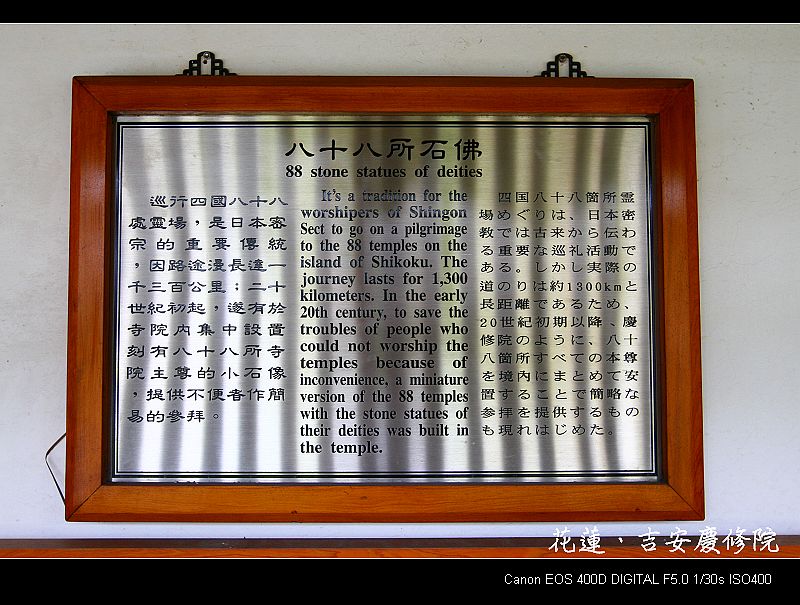 八十八所石佛
88 stone statues of deities
巡行四國八十八
處靈場，是日本密
宗的重要傳統
，因路途漫長達一
千三百公里；二十
世紀初起，遂有於
寺院內集中設置
刻有八十八所寺
院主尊的小石像
，提供不便者作簡
易的參拜。
It's a tradition for the
worshipers of Shingon
Sect to go on a pilgrimage
to the 88 temples on the
island of Shikoku. The
journey lasts for 1,300
kilometers. In the early
20th century, to save the
troubles of people who
could not worship the
temples because of
inconvenience, a miniature
version of the 88 temples
with the stone statues of
their deities was built in
the temple.
四国八十八箇所霊
場めぐりは、日本密
教では古来から伝わ
る重要な巡礼活動で
ある。しかし実際の
道のりは約1300kmと
長距離であるため、
20世紀初期以降、慶
修院のように、八十
八箇所すべての本尊
を境内にまとめて安
置することで簡略な
参拝を提供するもの
も現れはじめた。
花蓮、吉安慶修院
Canon EOS 400D DIGITAL F5.0 1/30s ISO400